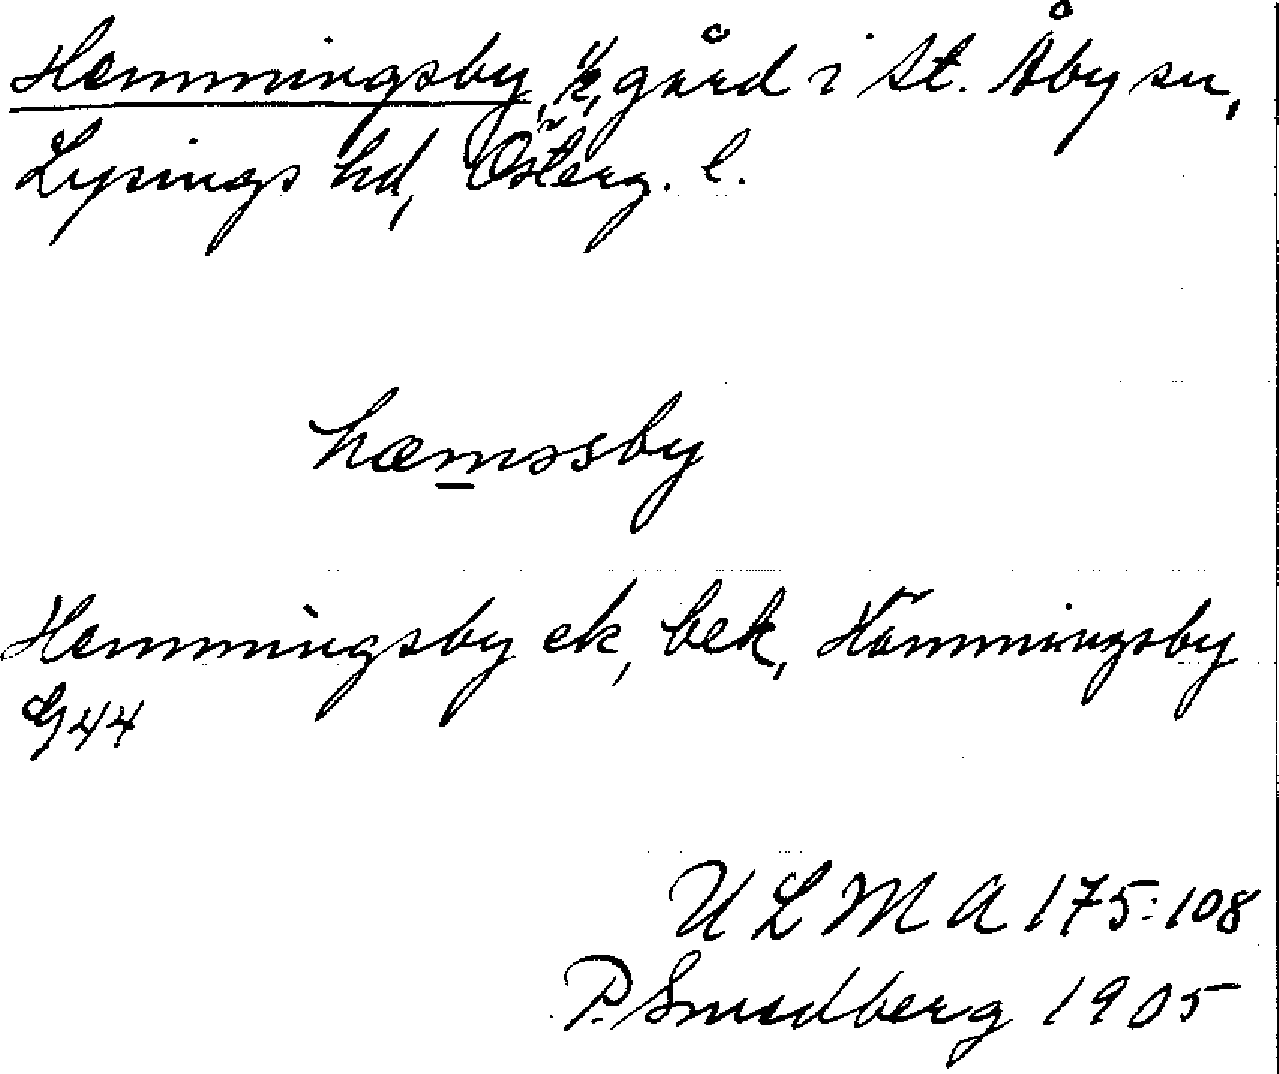 Hemmingsby, gård i St. Åby sn,
Lysings hd, Österg. l.
hæmssby
Hemmingsby ek, bek, Hämmingsby
G44
ULMA 175:108
P. Smedberg 1905